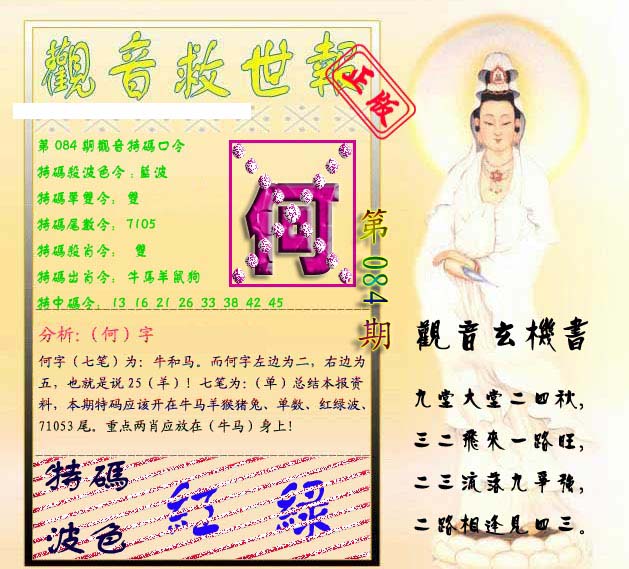 觀音救世報
正版
第084期觀音特碼口令
特碼殺波色令:藍波
特碼單雙令: 雙
特碼尾數令: 7105
特碼殺肖令: 雙
特碼出肖令: 牛馬羊鼠狗
特中碼令: 13 16 21 26 33 38 42 45
何
第084期
分析:(何)字
何字(七笔)为:牛和马。而何字左边为二,右边为
五,也就是说25(羊)!七笔为:(单)总结本报资
料,本期特码应该开在牛马羊猴猪兔、单数、红绿波、
71053尾。重点两肖应放在(牛马)身上!
特碼
波色
紅 綠
觀音玄機書
九堂大堂二四秋,
三二飛來一路旺,
二三流落九爭強,
二路相逢見四三。